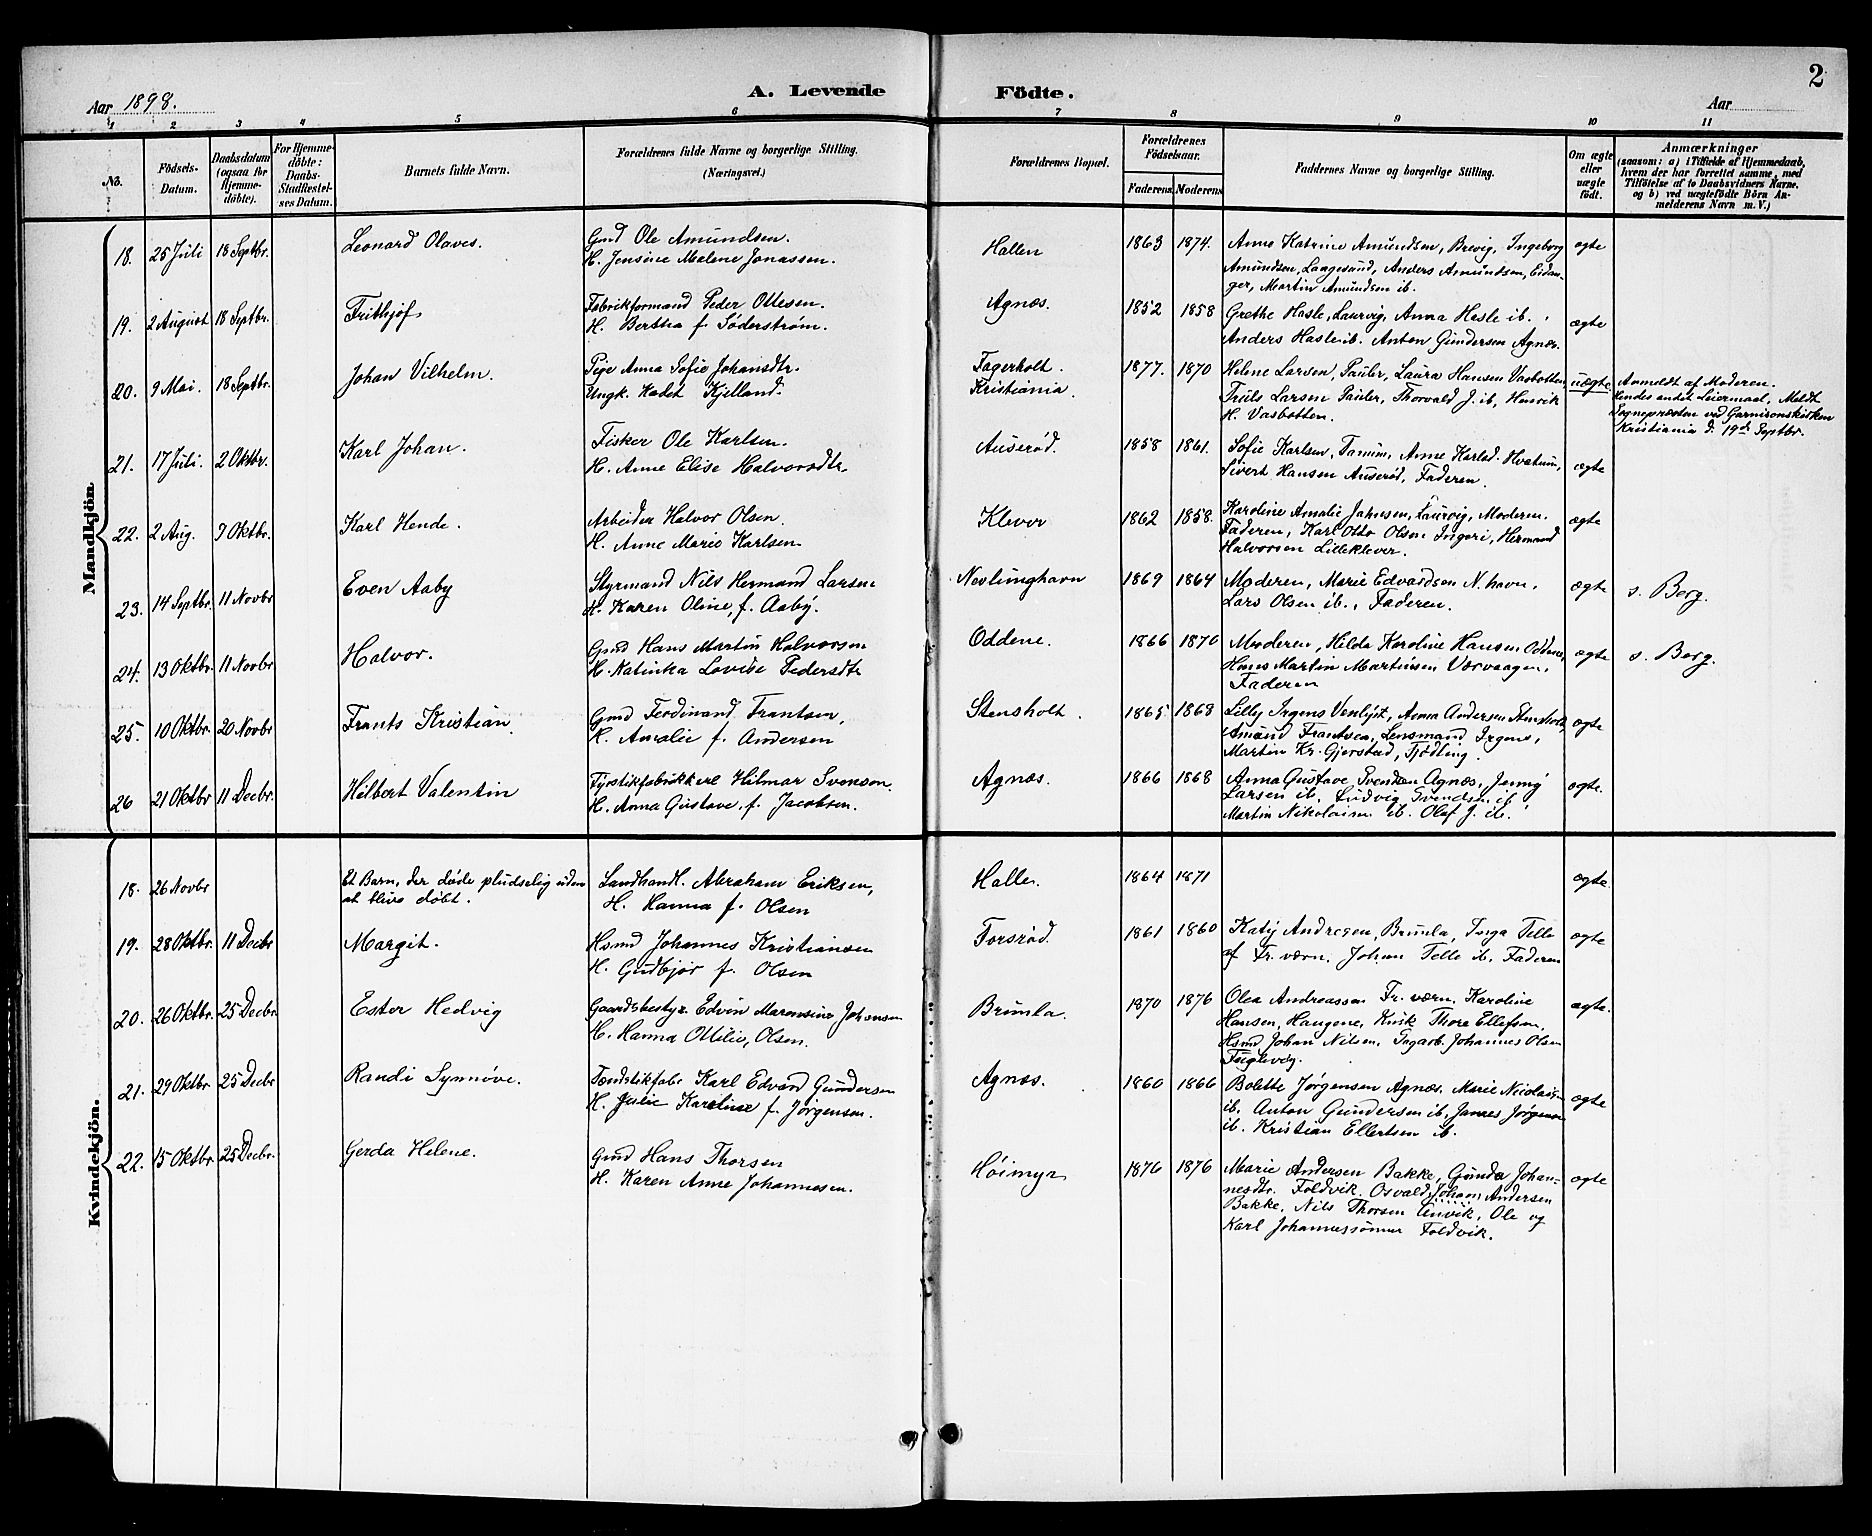 2
Aar 1898.
A. Levende Födte.
Aar
1 2 3 4 5 6 7 8 9 10 11
No.
Födsels-Datum.
Daabsdatum (ogsaa for Hjemme-döbte).
For Hjemme-döbte: Daabs-Stadfæstel-ses Datum.
Barnets fulde Navn.
Forældrenes fulde Navne og borgerlige Stilling. (Næringsvei.)
Forældrenes Bopæl.
Forældrenes Födselsaar.
Faderens. Moderens.
Faddernes Navne og borgerlige Stilling.
Om ægte eller uægte födt.
Anmærkninger
(saasom: a) i Tilfælde af Hjemmedaab, hvem der har forrettet samme, med Tilföielse af to Daabsvidners Navne. og b) ved uægtefödte Börn An-melderens Navn m. V.)
Mandkjön
18. 25 Juli 18 Septbr. Leonard Olaves. Gmd Ole Amundsen.
H. Jensine Malene Jonassen.
Hallen 1863 1874. Anne Katrine Amundsen, Brevig, Ingeborg
Amundsen, Laagesund, Anders Amundsen, Eidan-
ger, Martin Amundsen ib.
ægte
19. 2 August 18 Septbr. Frithjof. Fabrikformand Peder Ottesen.
H. Bertha f. Söderström.
Agnæs. 1852 1858 Grethe Hasle, Laurvig, Anna Hasle ib.
Anders Hasle ib. Anton Gundersen Agnæs.
ægte
20. 9 Mai. 18 Septbr. Johan Vilhelm. Pige Anna Sofie Johansdtr.
Ungk. Kadet Kjelland.
Fagerholt.
Kristiania.
1877. 1870 Helene Larsen, Pauler, Laura Hansen Vasbotten
Truls Larsen Pauler, Thorvald J. ib, Henrik
H. Vasbotten.
uægte Anmeldt af Moderen.
Hendes andet Leiermaal. Meldt
Sognepræsten ved Garnisonskirken
Kristiania d. 19de Septbr.
21. 17 Juli. 2 Oktbr. Karl Johan. Fisker Ole Karlsen.
H. Anne Elise Halvorsdtr.
Auserød. 1858 1861. Sofie Karlsen, Tanum, Anne Karlsd. Hvatum,
Sivert Hansen Auserød, Faderen.
ægte
22. 2 Aug. 9 Oktbr. Karl Hende. Arbeider Halvor Olsen.
H. Anne Marie Karlsen
Klever 1862 1858. Karoline Amalie Jahnsen, Laurvig, Moderen.
Faderen, Karl Otto Olsen Ingeri, Hermand
Halvorsen Lilleklever.
ægte
23. 14 Septbr. 11 Novbr Even Aaby Styrmand Nils Hermand Larsen
H. Karen Oline, f. Aaby.
Nevlunghavn 1869 1864 Moderen, Marie Edvardsen N. havn,
Lars Olsen ib., Faderen.
ægte s. Berg.
24. 13 Oktbr. 11 Novbr Halvor. Gmd Hans Martin Halvorsen
H. Katinka Lovise Pedersdtr
Oddene. 1866 1870 Moderen, Hilda Karoline Hansen Oddene,
Hans Martin Martinsen Værvaagen,
Faderen
ægte s. Berg.
25. 10 Oktbr. 20 Novbr Frants Kristian. Gmd Ferdinand Frantsen,
H. Amalie f. Andersen
Stensholt. 1865 1868 Lilly Irgens Venlyst, Anna Andersen Stensholt,
Amund Frantsen, Lensmand Irgens,
Martin Kr. Gjerstad, Tjødling.
ægte
26 21 Oktbr 11 Decbr. Hilbert Valentin Hilmar Svenson.
H. Anna Gustave f. Jacobsen.
Agnæs. 1866 1868 Anna Gustave Svendsen Agnæs, Jenny
Larsen ib. Ludvig Svendsen ib
Martin Nikolaisen ib. Olaf J. ib.
ægte.
Kvindekjön.
18. 26 Novbr Et Barn, der døde pludselig uden
at blive døbt.
Landhandl. Abraham Eriksen,
H. Hanna f. Olsen
Halle. 1864 1871 ægte.
19. 28 Oktbr. 11 Decbr Margit. Hsmd Johannes Kristiansen
H. Gudbjør f. Olsen
Forsrød. 1861 1860 Katy Andresen, Brunla, Inga Telle
af Fr. værn. Johan Telle ib. Faderen
ægte
20. 26 Oktbr. 25 Decbr. Ester Hedvig Gaardsbestyr. Edvin Johansen
H. Hanna Ottilie, Olsen.
Brunla. 1870 1876 Olea Andreassen Fr. værn. Karoline
Hansen, Haugene, Kusk Thore Ellefsen,
Hsmd Johan Nilsen, Johannes Olsen
Fuglevig.
ægte.
21. 29 Oktbr. 25 Decbr Randi Synnøve. Tændstikfab. Karl Edvard Gundersen
H. Julie Karoline f. Jørgensen.
Agnæs. 1860 1866 Bolette Jørgensen Agnæs. Marie Nicolaisen
ib. Anton Gundersen ib, James Jørgensen
ib. Kristian Ellertsen ib.
ægte
22. 15 Oktbr. 25 Decbr. Gerda Helene. Gmd Hans Thorsen
H. Karen Anne Johannesen.
Höimyr 1876 1876 Marie Andersen Bakke, Gunda Johan-
nesdtr. Foldvik. Osvald Johan Andersen
Bakke, Nils Thorsen Ole og
Karl Johannessönner Foldvik.
ægte